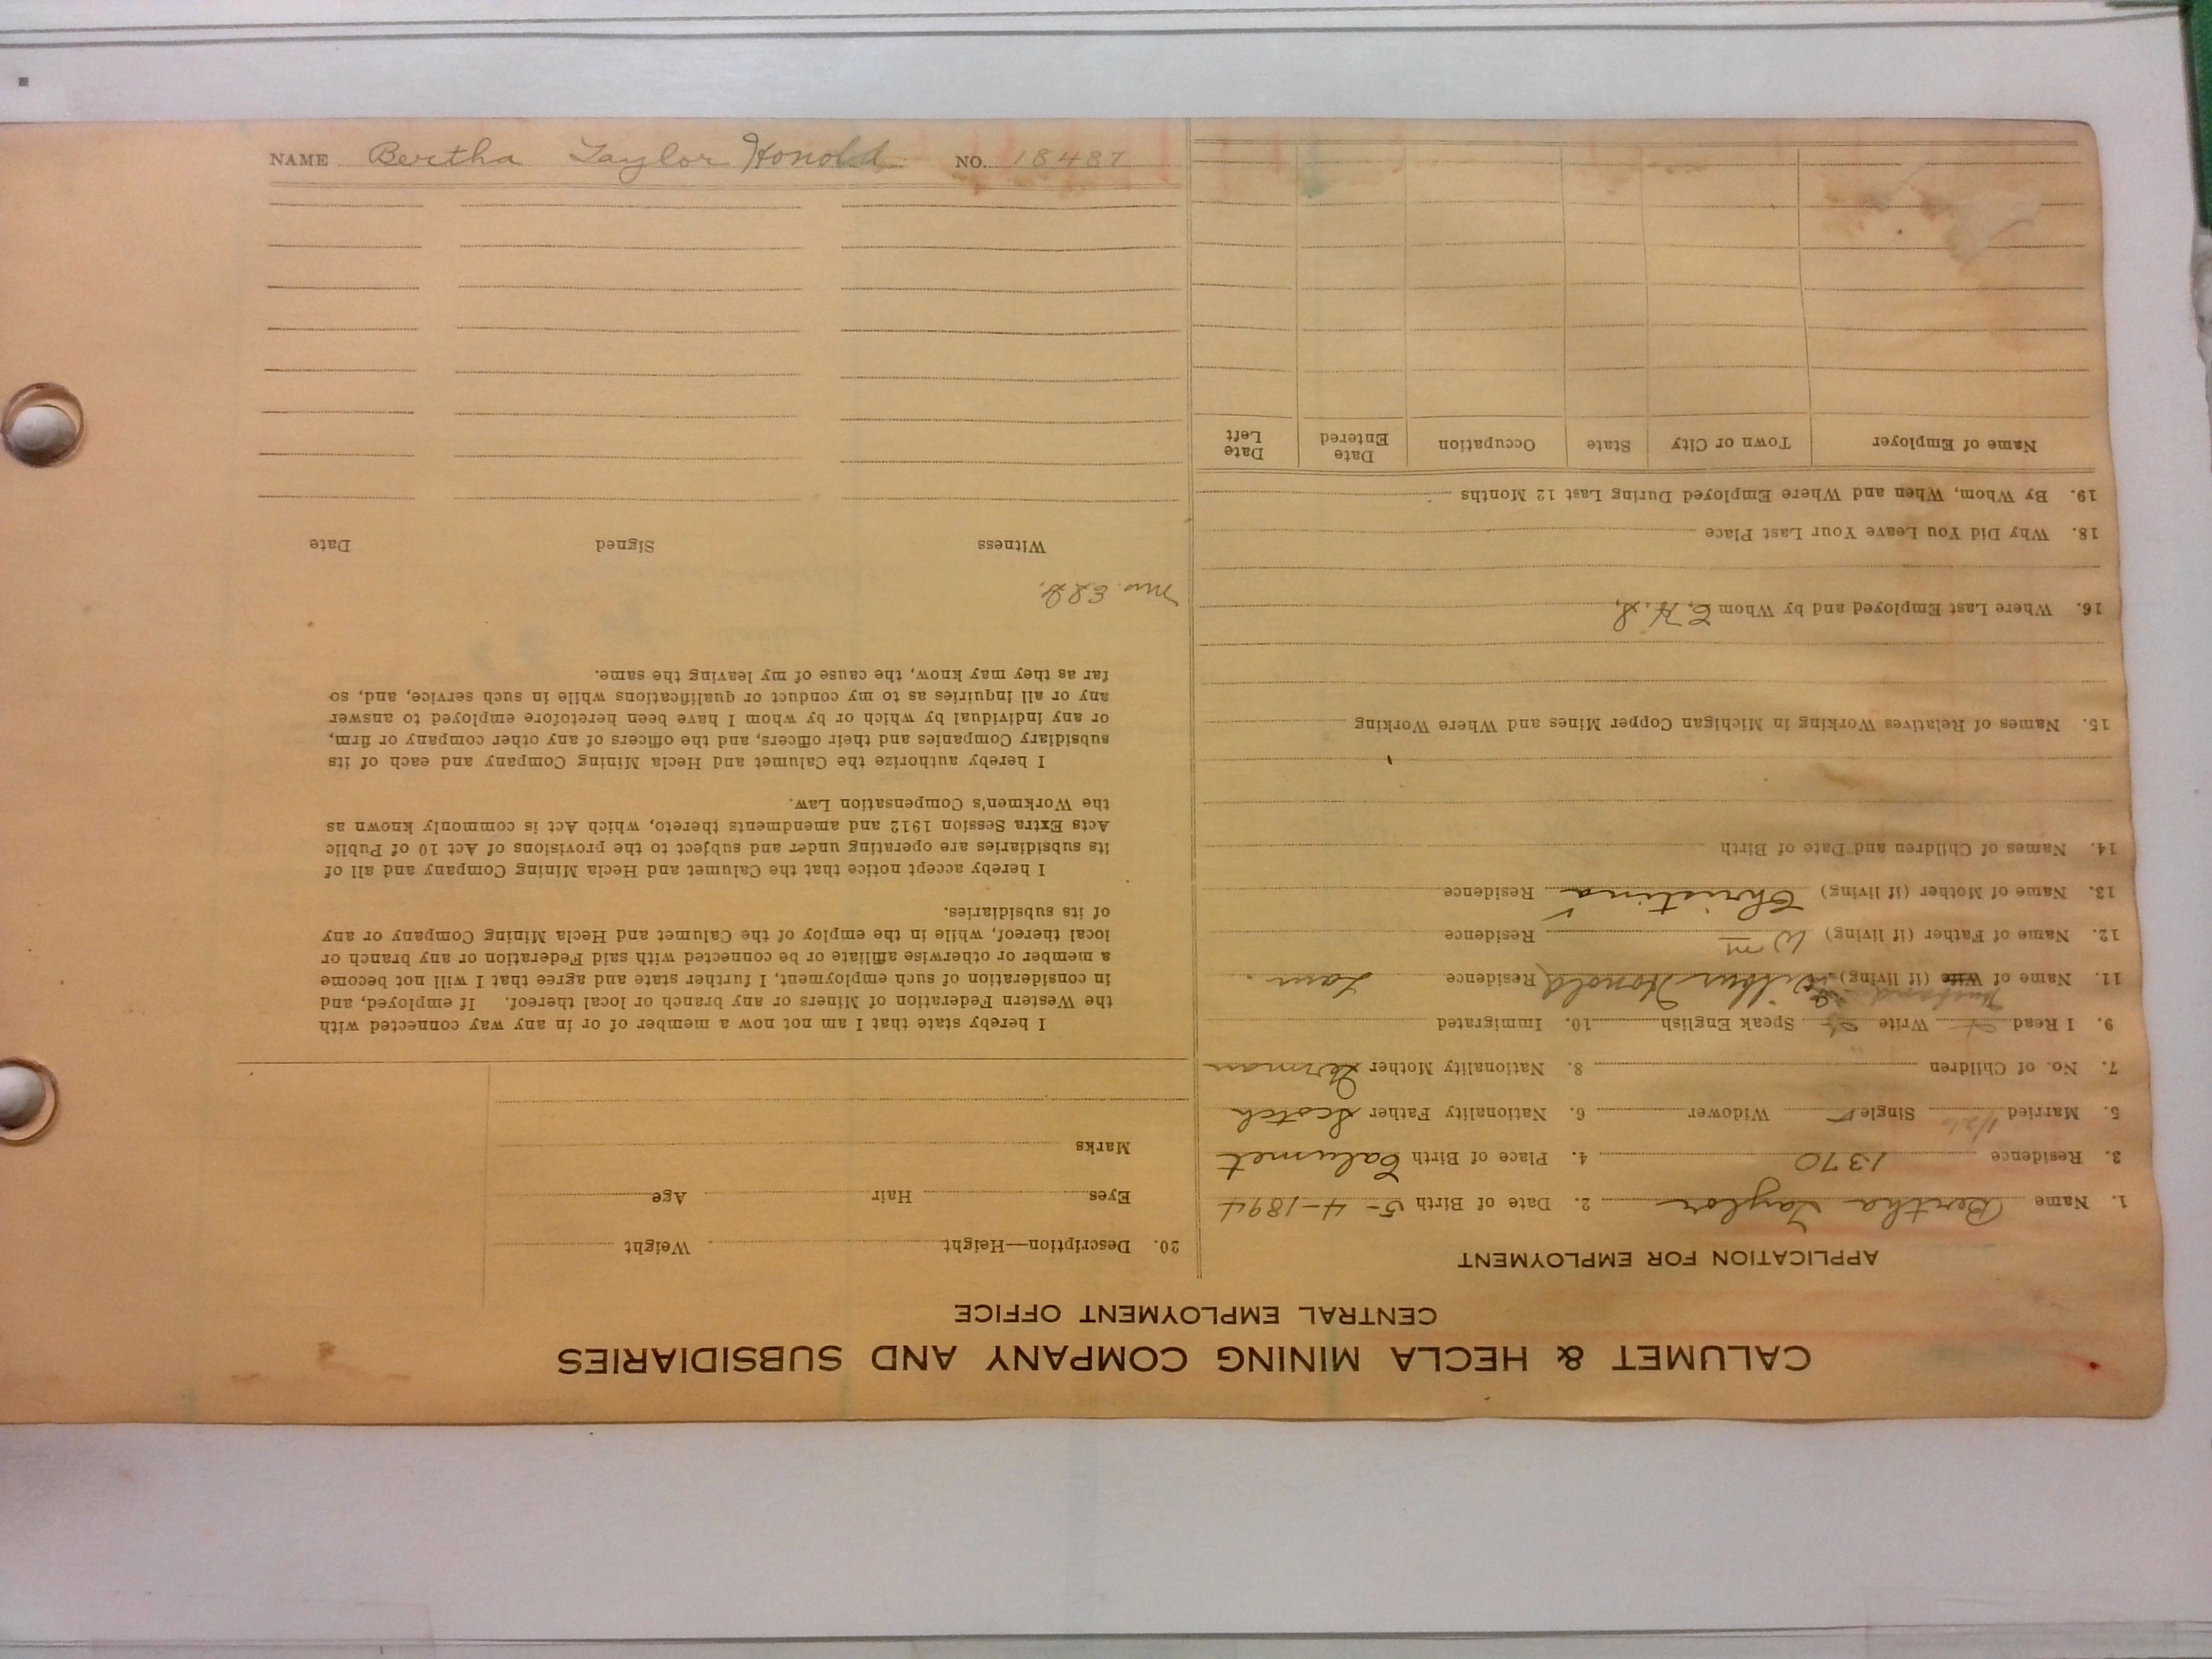 CALUMET & HECLA MINING COMPANY AND SUBSIDIARIES
CENTRAL EMPLOYMENT OFFICE
APPLICATION FOR EMPLOYMENT
1. Name Bertha Taylor 2. Date of Birth 5-4-1894
3. Residence 1370 4. Place of Birth Calumet
5. Married 1/26 Single ✓ Widower 6. Nationality Father Scotch
7. No. of Children 8. Nationality Mother German
9. I Read Write Speak English 10. Immigrated
Husband
11. Name of Wife (if living) Wilbur Honold Residence Laur
12. Name of Father (if living) Wm Residence
13. Name of Mother (if living) Christina Residence
14. Names of Children and Date of Birth
15. Names of Relatives Working in Michigan Copper Mines and Where Working
16. Where Last Employed and by Whom C. H. S.
18. Why Did You Leave Your Last Place
19. By Whom, When and Where Employed During Last 12 Months
Name of Employer Town or City State Occupation Date Entered Date Left
20. Description—Height Weight
Eyes Hair Age
Marks
I hereby state that I am not now a member of or in any way connected with
the Western Federation of Miners or any branch or local thereof. If employed, and
in consideration of such employment, I further state and agree that I will not become
a member or otherwise affiliate or be connected with said Federation or any branch or
local thereof, while in the employ of the Calumet and Hecla Mining Company or any
of its subsidiaries.
I hereby accept notice that the Calumet and Hecla Mining Company and all of
its subsidiaries are operating under and subject to the provisions of Act 10 of Public
Acts Extra Session 1912 and amendments thereto, which Act is commonly known as
the Workmen's Compensation Law.
I hereby authorize the Calumet and Hecla Mining Company and each of its
subsidiary Companies and their officers, and the officers of any other company or firm,
or any individual by which or by whom I have been heretofore employed to answer
any or all inquiries as to my conduct or qualifications while in such service, and, so
far as they may know, the cause of my leaving the same.
Witness Signed Date
NAME Bertha Taylor Honold NO. 18487